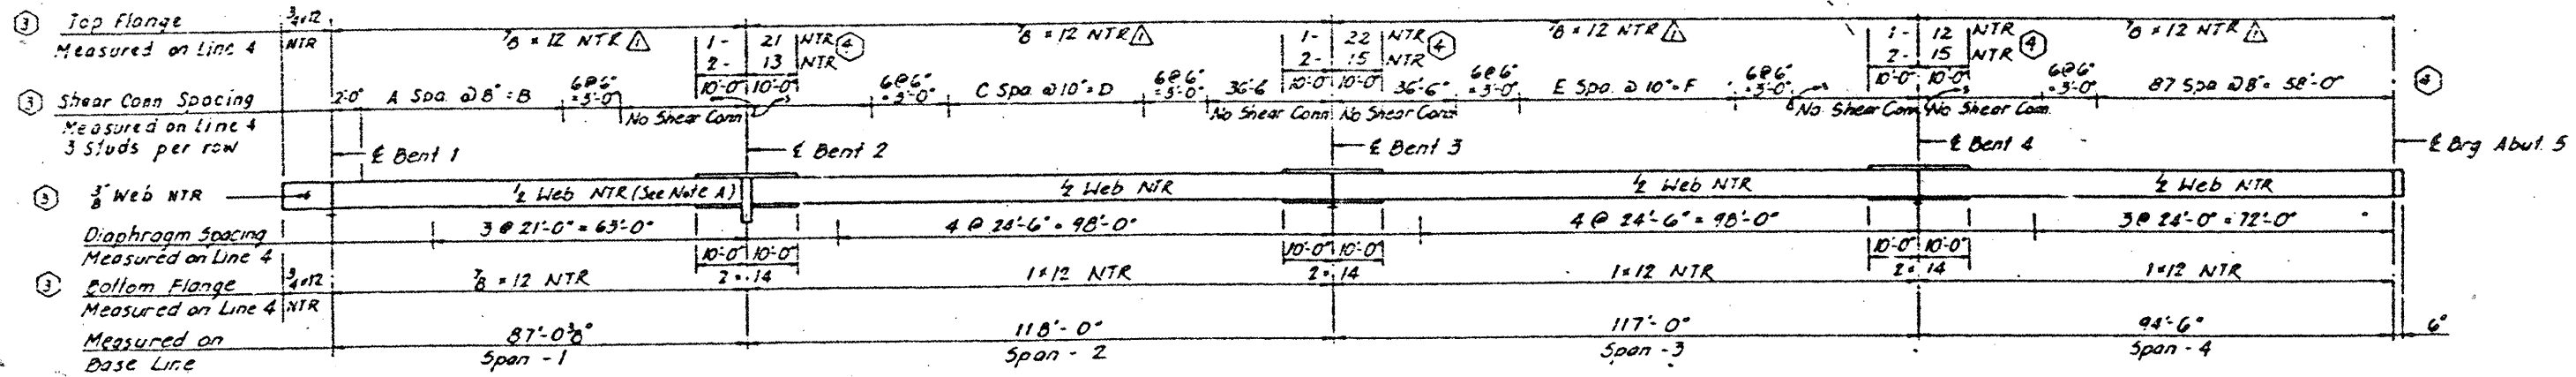 ③ Top Flange
Measured on Line 4
3/4x12
NTR
7/8 x 12 NTR ⚠1
1- 21 NTR ④
2- 13 NTR
10'-0" 10'-0"
7/8 x 12 NTR ⚠1
1- 22 NTR ④
2- 15 NTR
10'-0" 10'-0"
7/8 x 12 NTR ⚠1
1- 12 NTR ④
2- 15 NTR
10'-0" 10'-0"
7/8 x 12 NTR ⚠1
③ Shear Conn Spacing
Measured on Line 4
3 Studs per row
2'-0" A Spa. @ 8" = B
6@6" = 3'-0"
No Shear Conn
6@6" = 3'-0"
C Spa @ 10" = D
6@6" = 3'-0"
36'-6
36'-6"
No Shear Conn No Shear Conn
6@6" = 3'-0"
E Spa. @ 10" = F
6@6" = 3'-0"
No Shear Conn No Shear Conn.
6@6" = 3'-0"
87 Spa @ 8" = 58'-0"
④
℄ Bent 1
℄ Bent 2
℄ Bent 3
℄ Bent 4
℄ Brg Abut. 5
③ 3/8" Web NTR
1/2 Web NTR (See Note A)
1/2 Web NTR
1/2 Web NTR
1/2 Web NTR
Diaphragm Spacing
Measured on Line 4
3 @ 21'-0" = 63'-0"
4 @ 24'-6" = 98'-0"
4 @ 24'-6" = 98'-0"
3 @ 24'-0" = 72'-0"
10'-0" 10'-0"
10'-0" 10'-0"
10'-0" 10'-0"
③ Bottom Flange
Measured on Line 4
3/4x12
NTR
7/8 x 12 NTR
2 x 14
1x12 NTR
2 x 14
1x12 NTR
2 x 14
1x12 NTR
Measured on
Base Line
87'-0 3/8"
Span - 1
118'- 0"
Span - 2
117'- 0"
Span - 3
94'-6"
Span - 4
6"